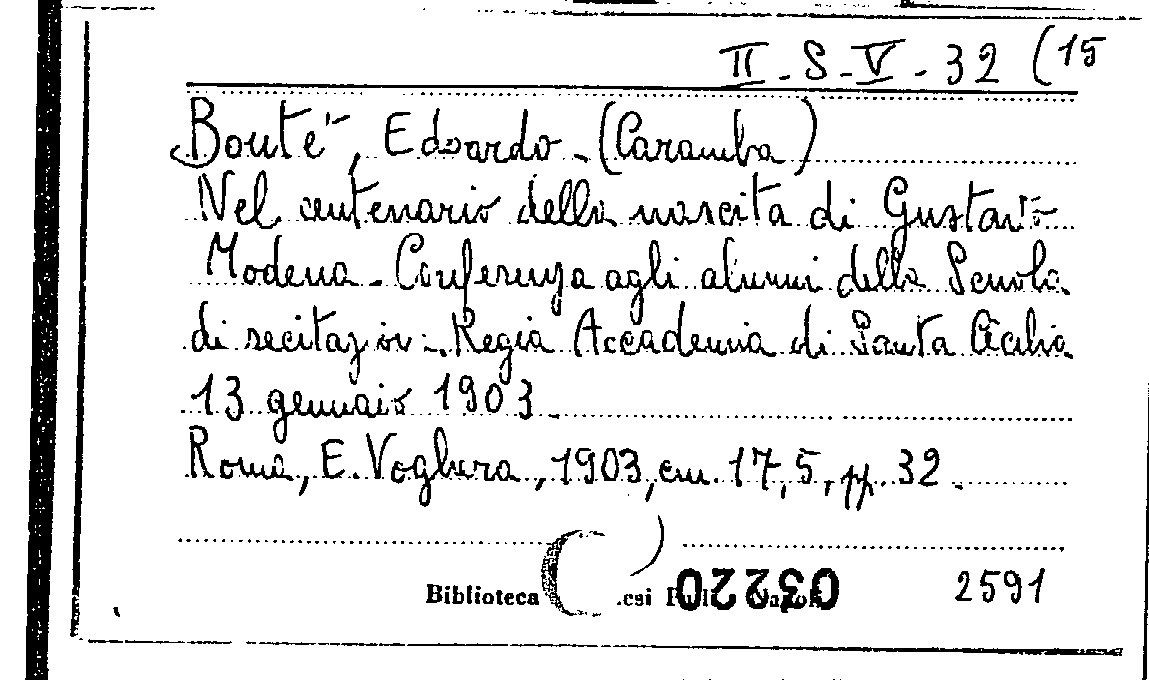 II-S-V-32 (15
Bouté, Edoardo - (Caramba)
Nel centenario della nascita di Gustavo
Modena - Conferenza agli alunni della Scuola
di recitazion: - Regia Accademia di Santa Cecilia
13 gennaio 1903
Roma, E. Voghera, 1903, cm. 17,5, pp. 32.
Biblioteca
03220
2591